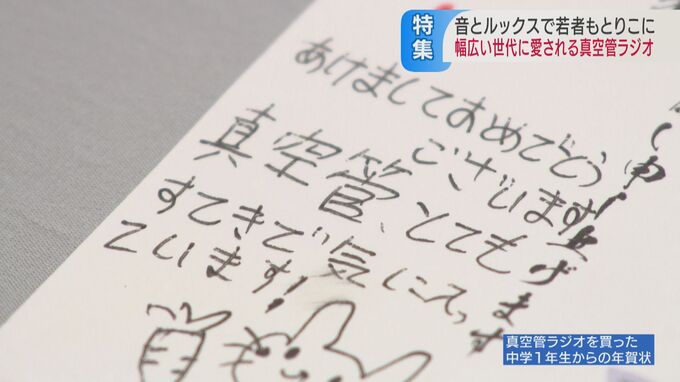 特集
音とルックスで若者もとりこに
幅広い世代に愛される真空管ラジオ
あけましておめでとう
ございます
真空管、とても
すてきで気に入っ
ています!
申し上げます
真空管ラジオを買った
中学1年生からの年賀状